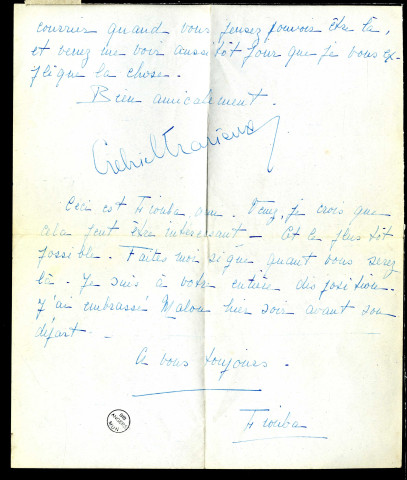 courrier quand vous pensez pouvoir être là,
et venez me voir aussitôt pour que je vous ex-
plique la chose.
Bien amicalement.
Ceci est Tiouba. Venez, je crois que
cela peut être intéressant — Et le plus tôt
possible. Faites moi signe quant vous serez
là. Je suis à votre entière disposition.
J'ai embrassé Malou hier soir avant son
départ.
A vous toujours.
Tiouba